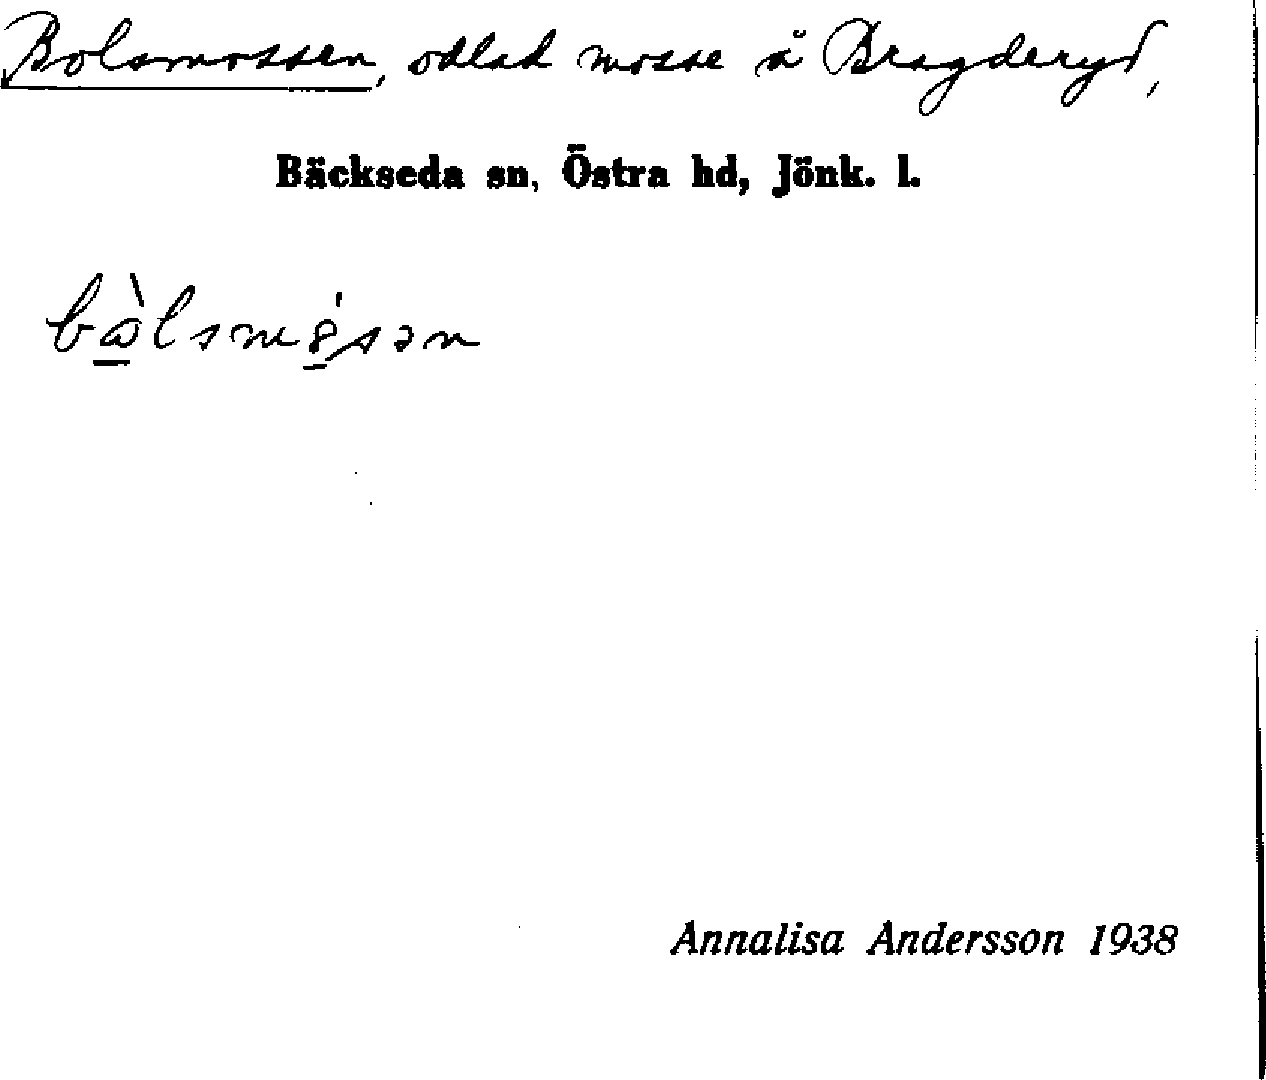 Bolsmossen, odlad mosse å Bragderyd,
Bäckseda sn, Östra hd, Jönk. l.
Annalisa Andersson 1938